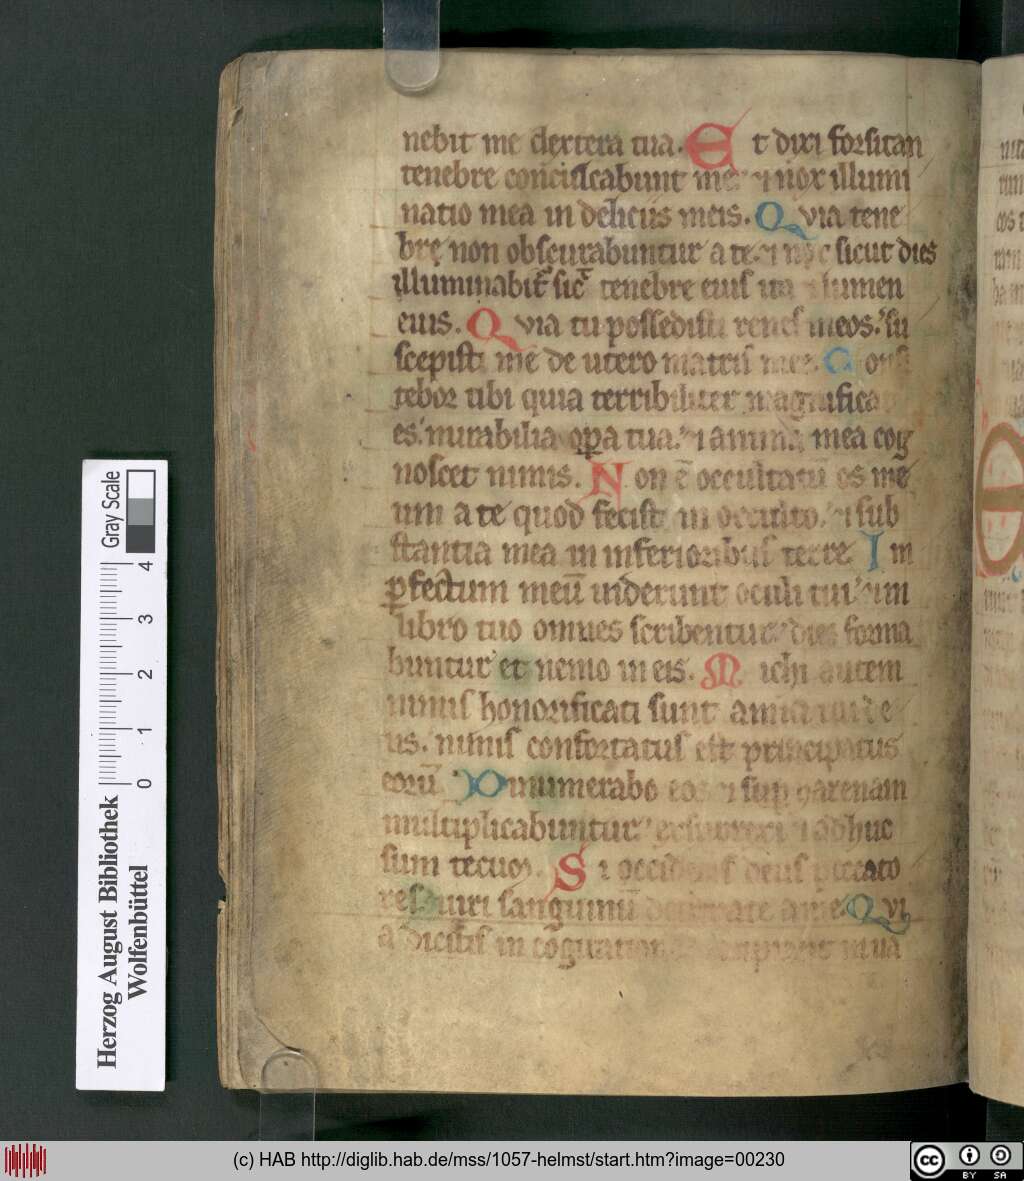 nebit me dextera tua. Et dixi forsitan
tenebre conculcabunt me: ⁊ nox illumi
natio mea in deliciis meis. Quia tene
brę non obscurabuntur a te. ⁊ nox sicut dies
illuminabit᷑ sic᷑ tenebre eius ita ⁊ lumen
eius. Quia tu possedisti renes meos. su
scepisti me de utero matris mee. Confi
tebor tibi quia terribiliter magnificat
es. mirabilia oꝑa tua. ⁊ anima mea cog
noscet nimis. Non ē occultatū os me
um a te quod fecisti in occulto. ⁊ sub
stantia mea in inferioribus terre. In
ꝑfectum meū uiderunt oculi tui. ⁊ in
libro tuo omnes scribentur. dies forma
buntur et nemo in eis. Michi autem
nimis honorificati sunt amici tui de
us. nimis confortatus est principatus
eorū. Dinumerabo eos ⁊ sup harenam
multiplicabuntur exsurrexi ⁊ adhuc
sum tecum. Si occideris deus peccato
res uiri sanguinū declinate a me. Qvi
a dicitis in cogitatione accipiant in ua
Herzog August Bibliothek
Wolfenbüttel
0 1 2 3 4
Gray Scale
(c) HAB http://diglib.hab.de/mss/1057-helmst/start.htm?image=00230
cc BY SA